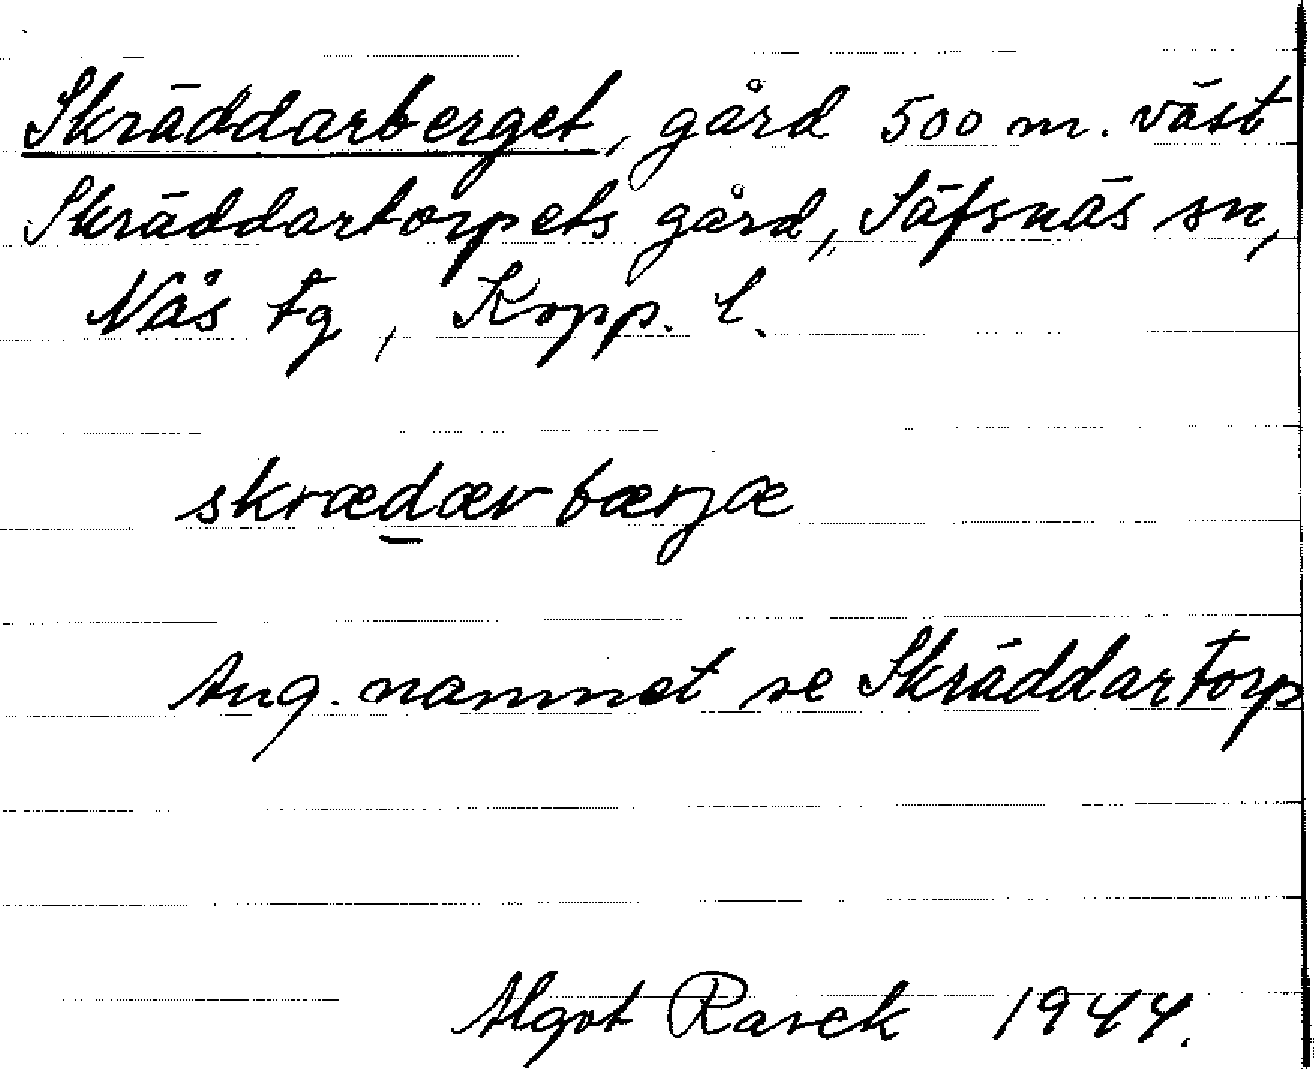 Skräddarberget, gård 500 m. väst
Skräddartorpets gård, Säfsnäs sn,
Nås tg, Kopp. l.
skrædærbærjæ
Ang. namnet se Skräddartorp
Algot Ravek 1944.